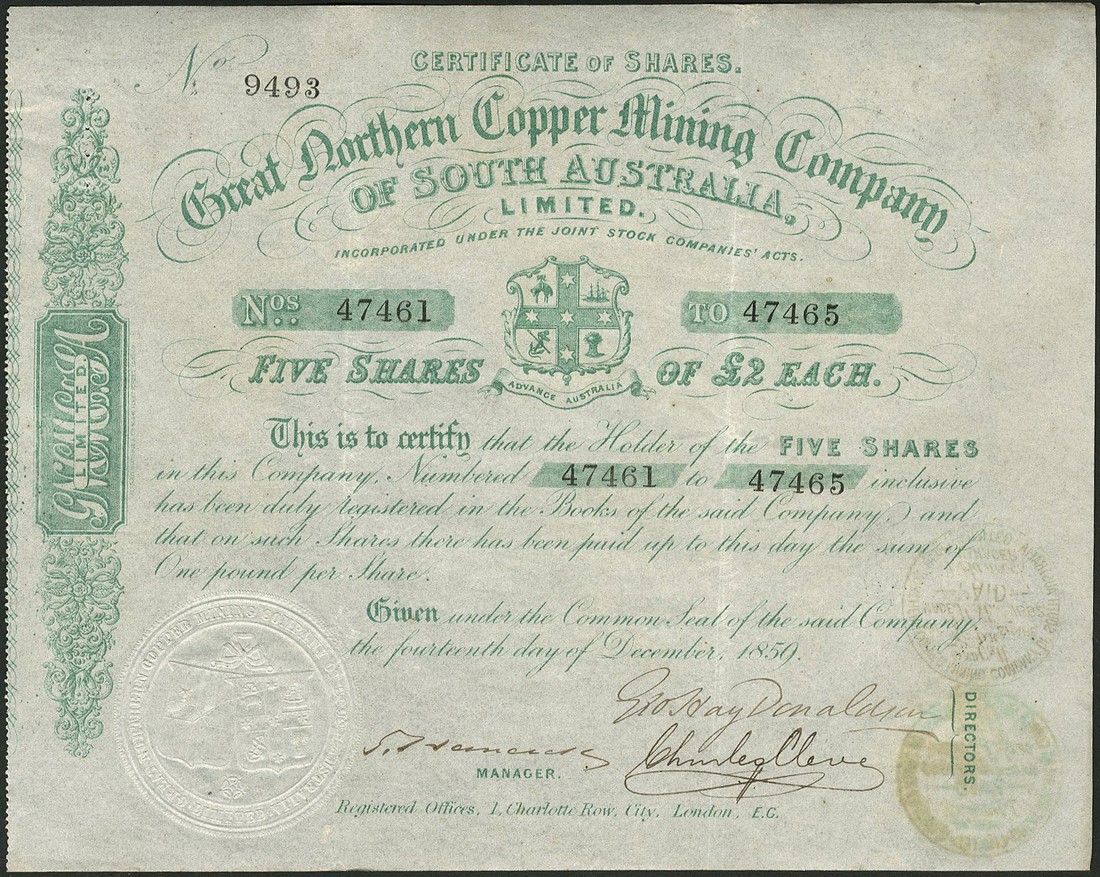 No. 9493
CERTIFICATE OF SHARES.
Great Northern Copper Mining Company
OF SOUTH AUSTRALIA,
LIMITED.
INCORPORATED UNDER THE JOINT STOCK COMPANIES' ACTS.
Nos. 47461 TO 47465
FIVE SHARES OF £2 EACH.
ADVANCE AUSTRALIA
This is to certify that the Holder of the FIVE SHARES
in this Company, Numbered 47461 to 47465 inclusive
has been duly registered in the Books of the said Company, and
that on such Shares there has been paid up to this day the sum of
One pound per Share.
Given under the Common Seal of the said Company,
the fourteenth day of December, 1859.
Geo Hay Donaldson
Charles Cleve
DIRECTORS.
MANAGER.
Registered Offices, 1, Charlotte Row, City, London, E.C.
LIMITED.